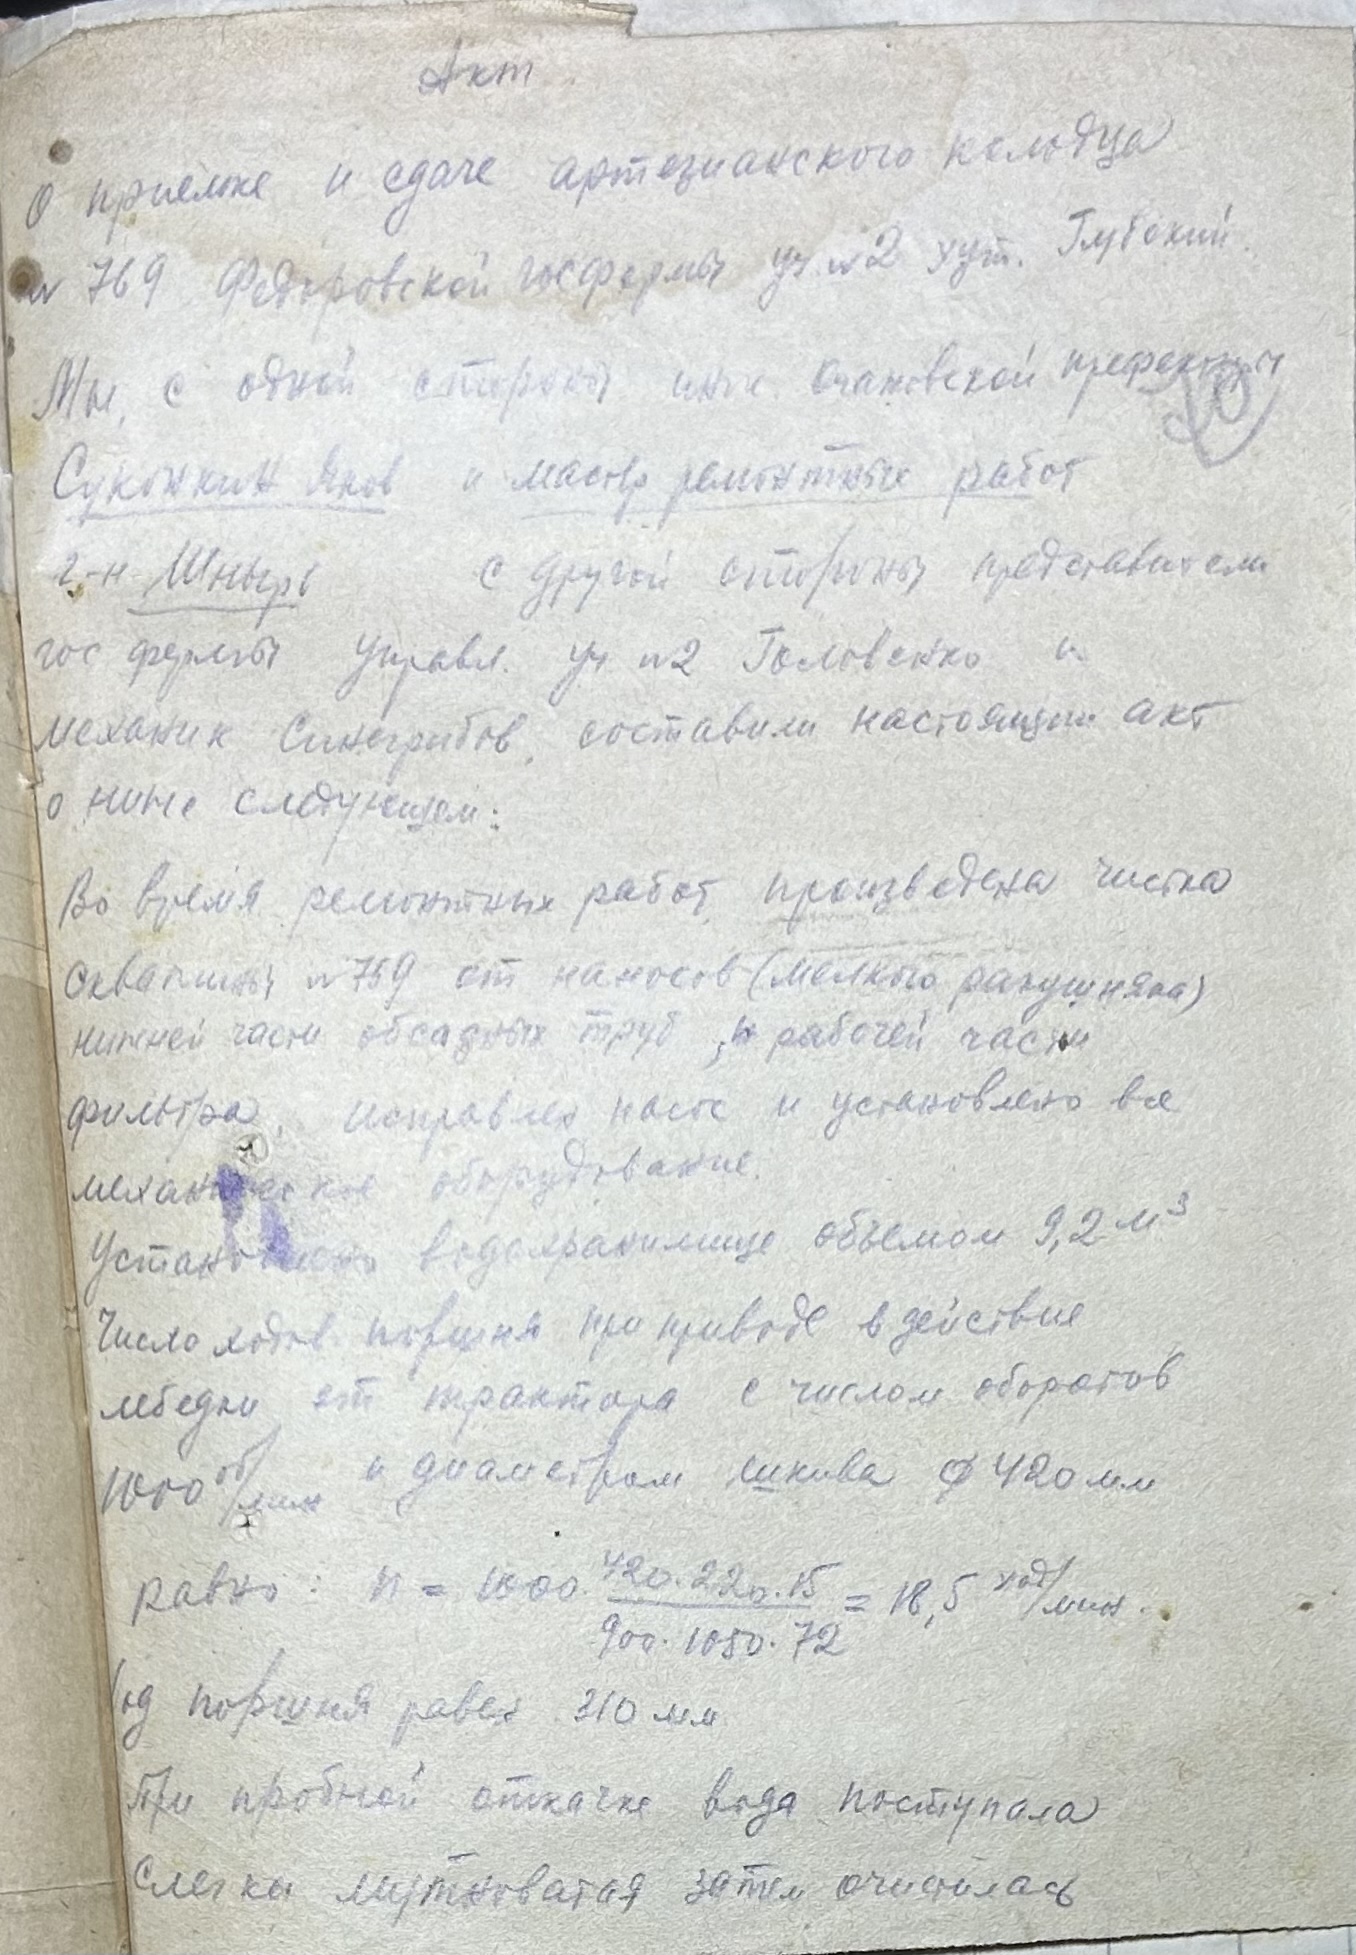 Акт
О приёмке и сдаче артезианского колодца
№ 769 Федоровской госфермы уч. №2 хут. Глубокий.
Мы, с одной стороны инж. Очаковской префектуры
20
Суконкин Яков и мастер ремонтных работ
г-н Шнырь с другой стороны представители
гос фермы управл. уч №2 Головенко и
механик Синегрибов, составили настоящий акт
о ниже следующем:
Во время ремонтных работ произведена чистка
скважины №759 от наносов (мелкого ракушняка)
нижней части обсадных труб, и рабочей части
фильтра, исправлен насос и установлено все
механическое оборудование.
Установлено водохранилище объемом 9,2 м³
Число ходов поршня при приводе в действие
лебедки от трактора с числом оборотов
1000 об/мин и диаметром шкива ф 420 мм
равно: n = 1000 · 420·220·15 / 900·1050·72 = 18,5 ход/мин.
Ход поршня равен 310 мм
При пробной откачке вода поступала
слегка мутноватая затем очистилась